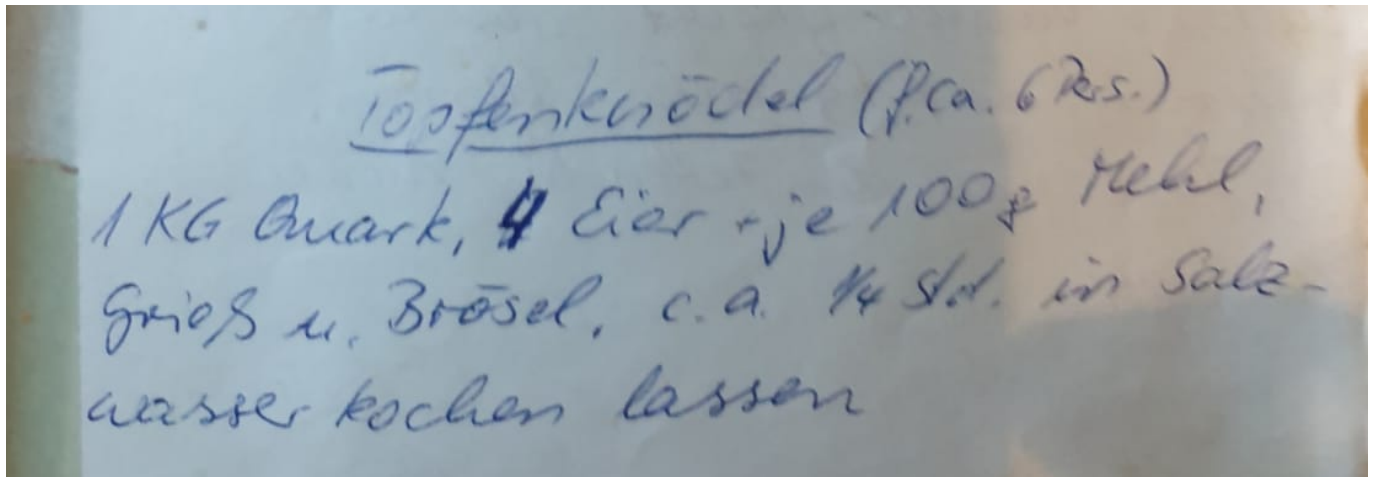 Topfenknödel (f. ca. 6 Pers.)
1 KG Quark, 4 Eier - je 100 g Mehl,
Grieß u. Brösel, c.a. 1/4 Std. in Salz-
wasser kochen lassen